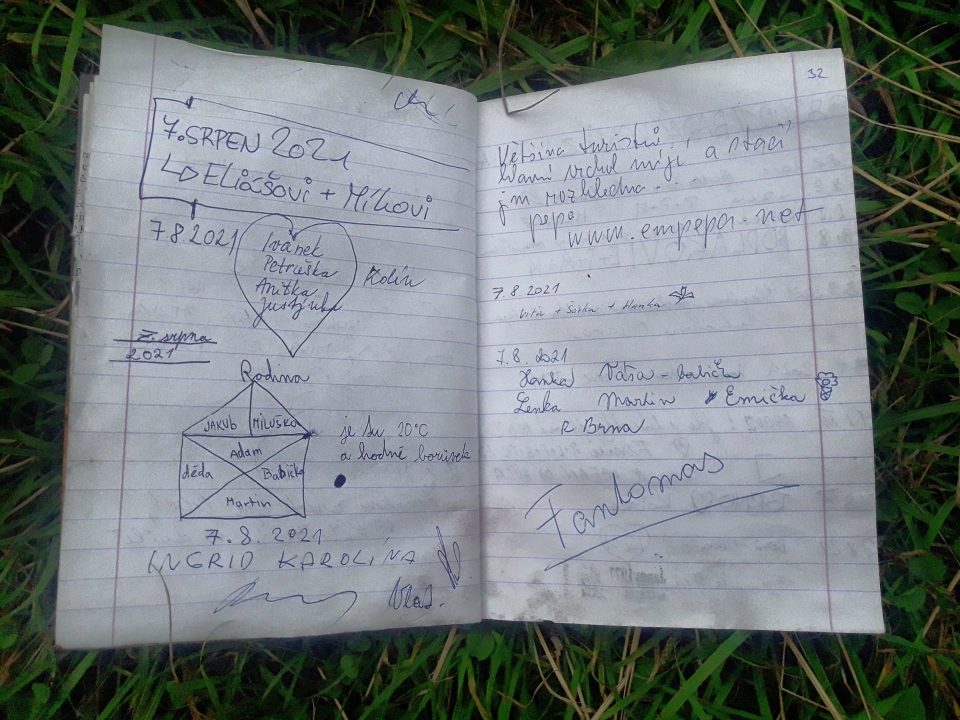 7. SRPEN 2021
↳ Eliášovi + Mílkovi
7 8. 2021
Ivánek
Petruška
Anitka
Justynka
Kolín
7. srpna
2021
Rodina
JAKUB MILUŠKA
Adam
děda Babička
Martin
je tu 20°C
a hodně borůvek
7. 8. 2021
INGRID KAROLÍNA
Vlad.
32
Většina turistů
hlavní vrchol míjí a stačí
jim rozhledna.
pepa
www.empepa.net
7. 8. 2021
+ Šárka + Hanka
7. 8. 2021
Hanka Váša - babička
Lenka Martin Emička
z Brna
Fantomas